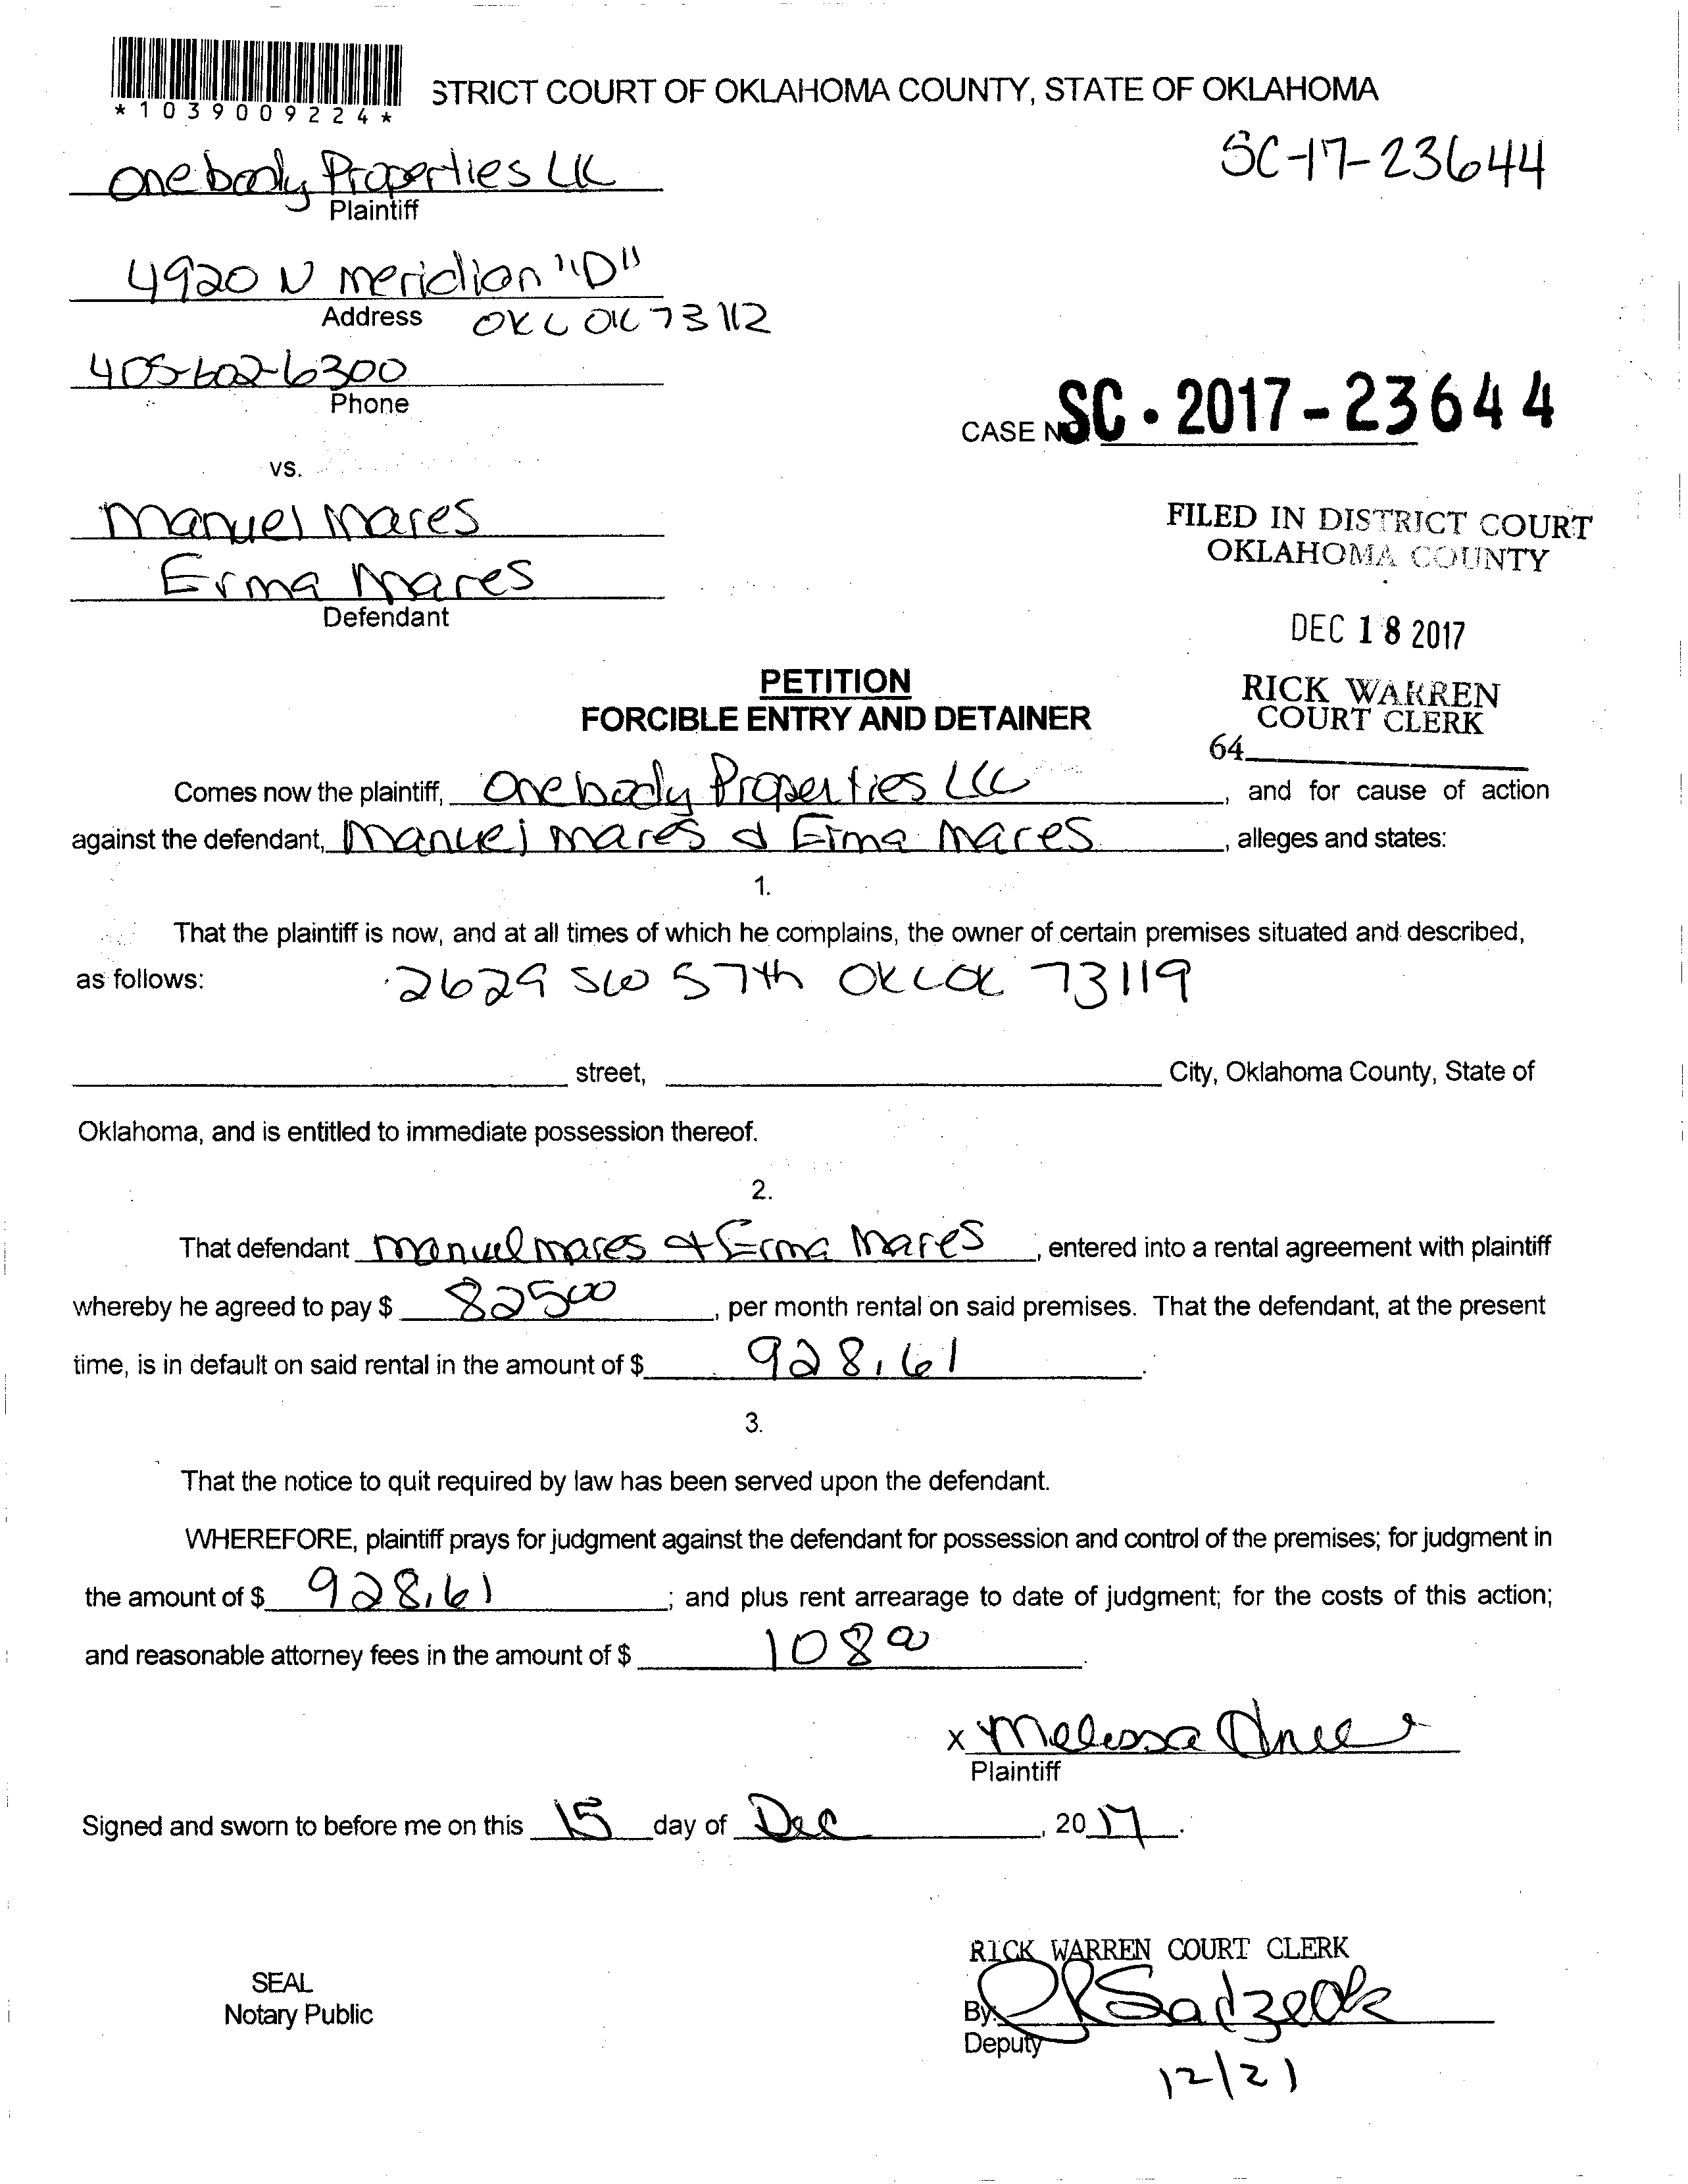 *1039009224*
STRICT COURT OF OKLAHOMA COUNTY, STATE OF OKLAHOMA
SC-17-23644
One body Properties LLC
Plaintiff
4920 N meridian "D"
Address OKC OK 73112
405-602-6300
Phone
CASE N SC - 2017-23644
vs.
Manuel Mares
FILED IN DISTRICT COURT
OKLAHOMA COUNTY
Erma Mares
Defendant
DEC 18 2017
PETITION
FORCIBLE ENTRY AND DETAINER
RICK WARREN
COURT CLERK
64
Comes now the plaintiff, One body Properties LLC, and for cause of action
against the defendant, Manuel Mares & Erma Mares, alleges and states:
1.
That the plaintiff is now, and at all times of which he complains, the owner of certain premises situated and described,
as follows: 2629 SW 57th OKC OK 73119
street, City, Oklahoma County, State of
Oklahoma, and is entitled to immediate possession thereof.
2.
That defendant Manuel Mares & Erma Mares, entered into a rental agreement with plaintiff
whereby he agreed to pay $ 825 00, per month rental on said premises. That the defendant, at the present
time, is in default on said rental in the amount of $ 928.61.
3.
That the notice to quit required by law has been served upon the defendant.
WHEREFORE, plaintiff prays for judgment against the defendant for possession and control of the premises; for judgment in
the amount of $ 928.61; and plus rent arrearage to date of judgment; for the costs of this action;
and reasonable attorney fees in the amount of $ 108 00.
x Melissa
Plaintiff
Signed and sworn to before me on this 15 day of Dec, 2017.
RICK WARREN COURT CLERK
SEAL
Notary Public
By:
Deputy
12/21